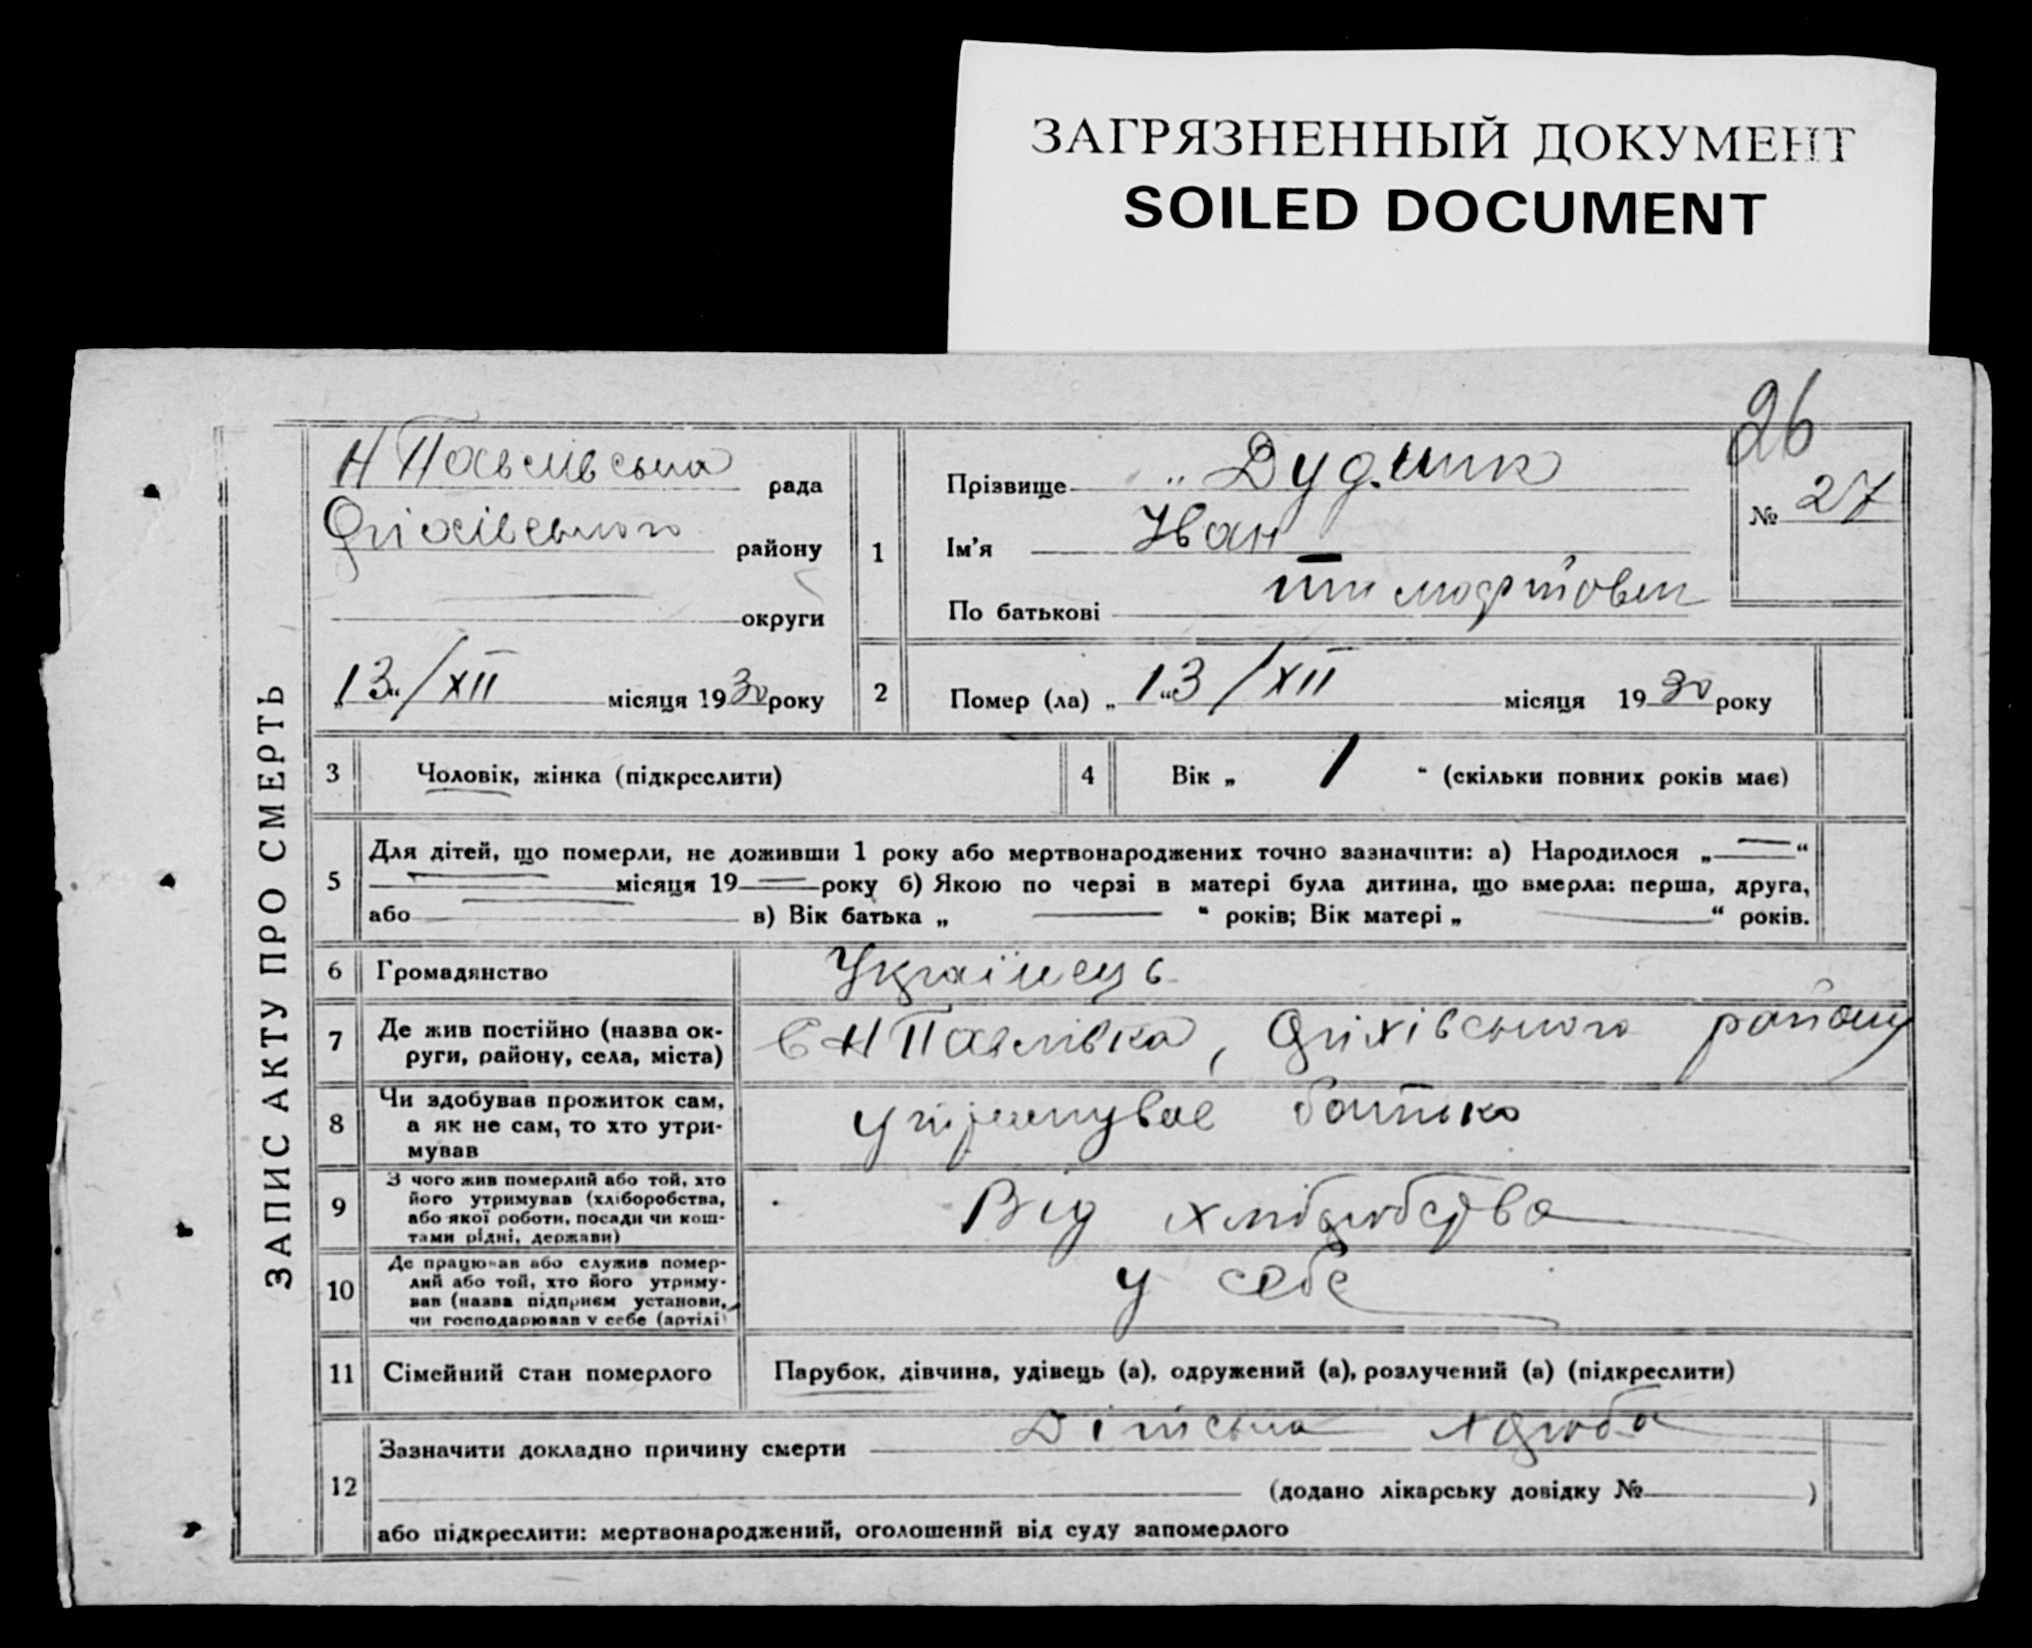 ЗАГРЯЗНЕННЫЙ ДОКУМЕНТ
SOILED DOCUMENT
26
№ 27
ЗАПИС АКТУ ПРО СМЕРТЬ
Н Павлівська рада
Оріхівського району
округи
„13“/XII місяця 1930 року
1
Прізвище Дудник
Ім'я Іван
По батькові Тимофійович
2
Помер (ла) „13“/XII місяця 1930 року
3 Чоловік, жінка (підкреслити)
4 Вік „ 1 “ (скільки повних років має)
5
Для дітей, що померли, не доживши 1 року або мертвонароджених точно зазначити: а) Народилося „—“
— місяця 19— року б) Якою по черзі в матері була дитина, що вмерла: перша, друга,
або — в) Вік батька „ — “ років; Вік матері „ — “ років.
6 Громадянство Українець
7 Де жив постійно (назва ок-
руги, району, села, міста)
С Н Павлівка, Оріхівського району
8 Чи здобував прожиток сам,
а як не сам, то хто утри-
мував
утримував батько
9 З чого жив померлий або той, хто
його утримував (хліборобства,
або якої роботи, посади чи кош-
тами рідні, держави)
Від хліборобства
10 Де працював або служив помер-
лий або той, хто його утриму-
вав (назва підприєм установи,
чи господарював у себе (артілі)
у себе
11 Сімейний стан померлого Парубок, дівчина, удівець (а), одружений (а), розлучений (а) (підкреслити)
12
Зазначити докладно причину смерти Дітська хороба
(додано лікарську довідку № )
або підкреслити: мертвонароджений, оголошений від суду запомерлого